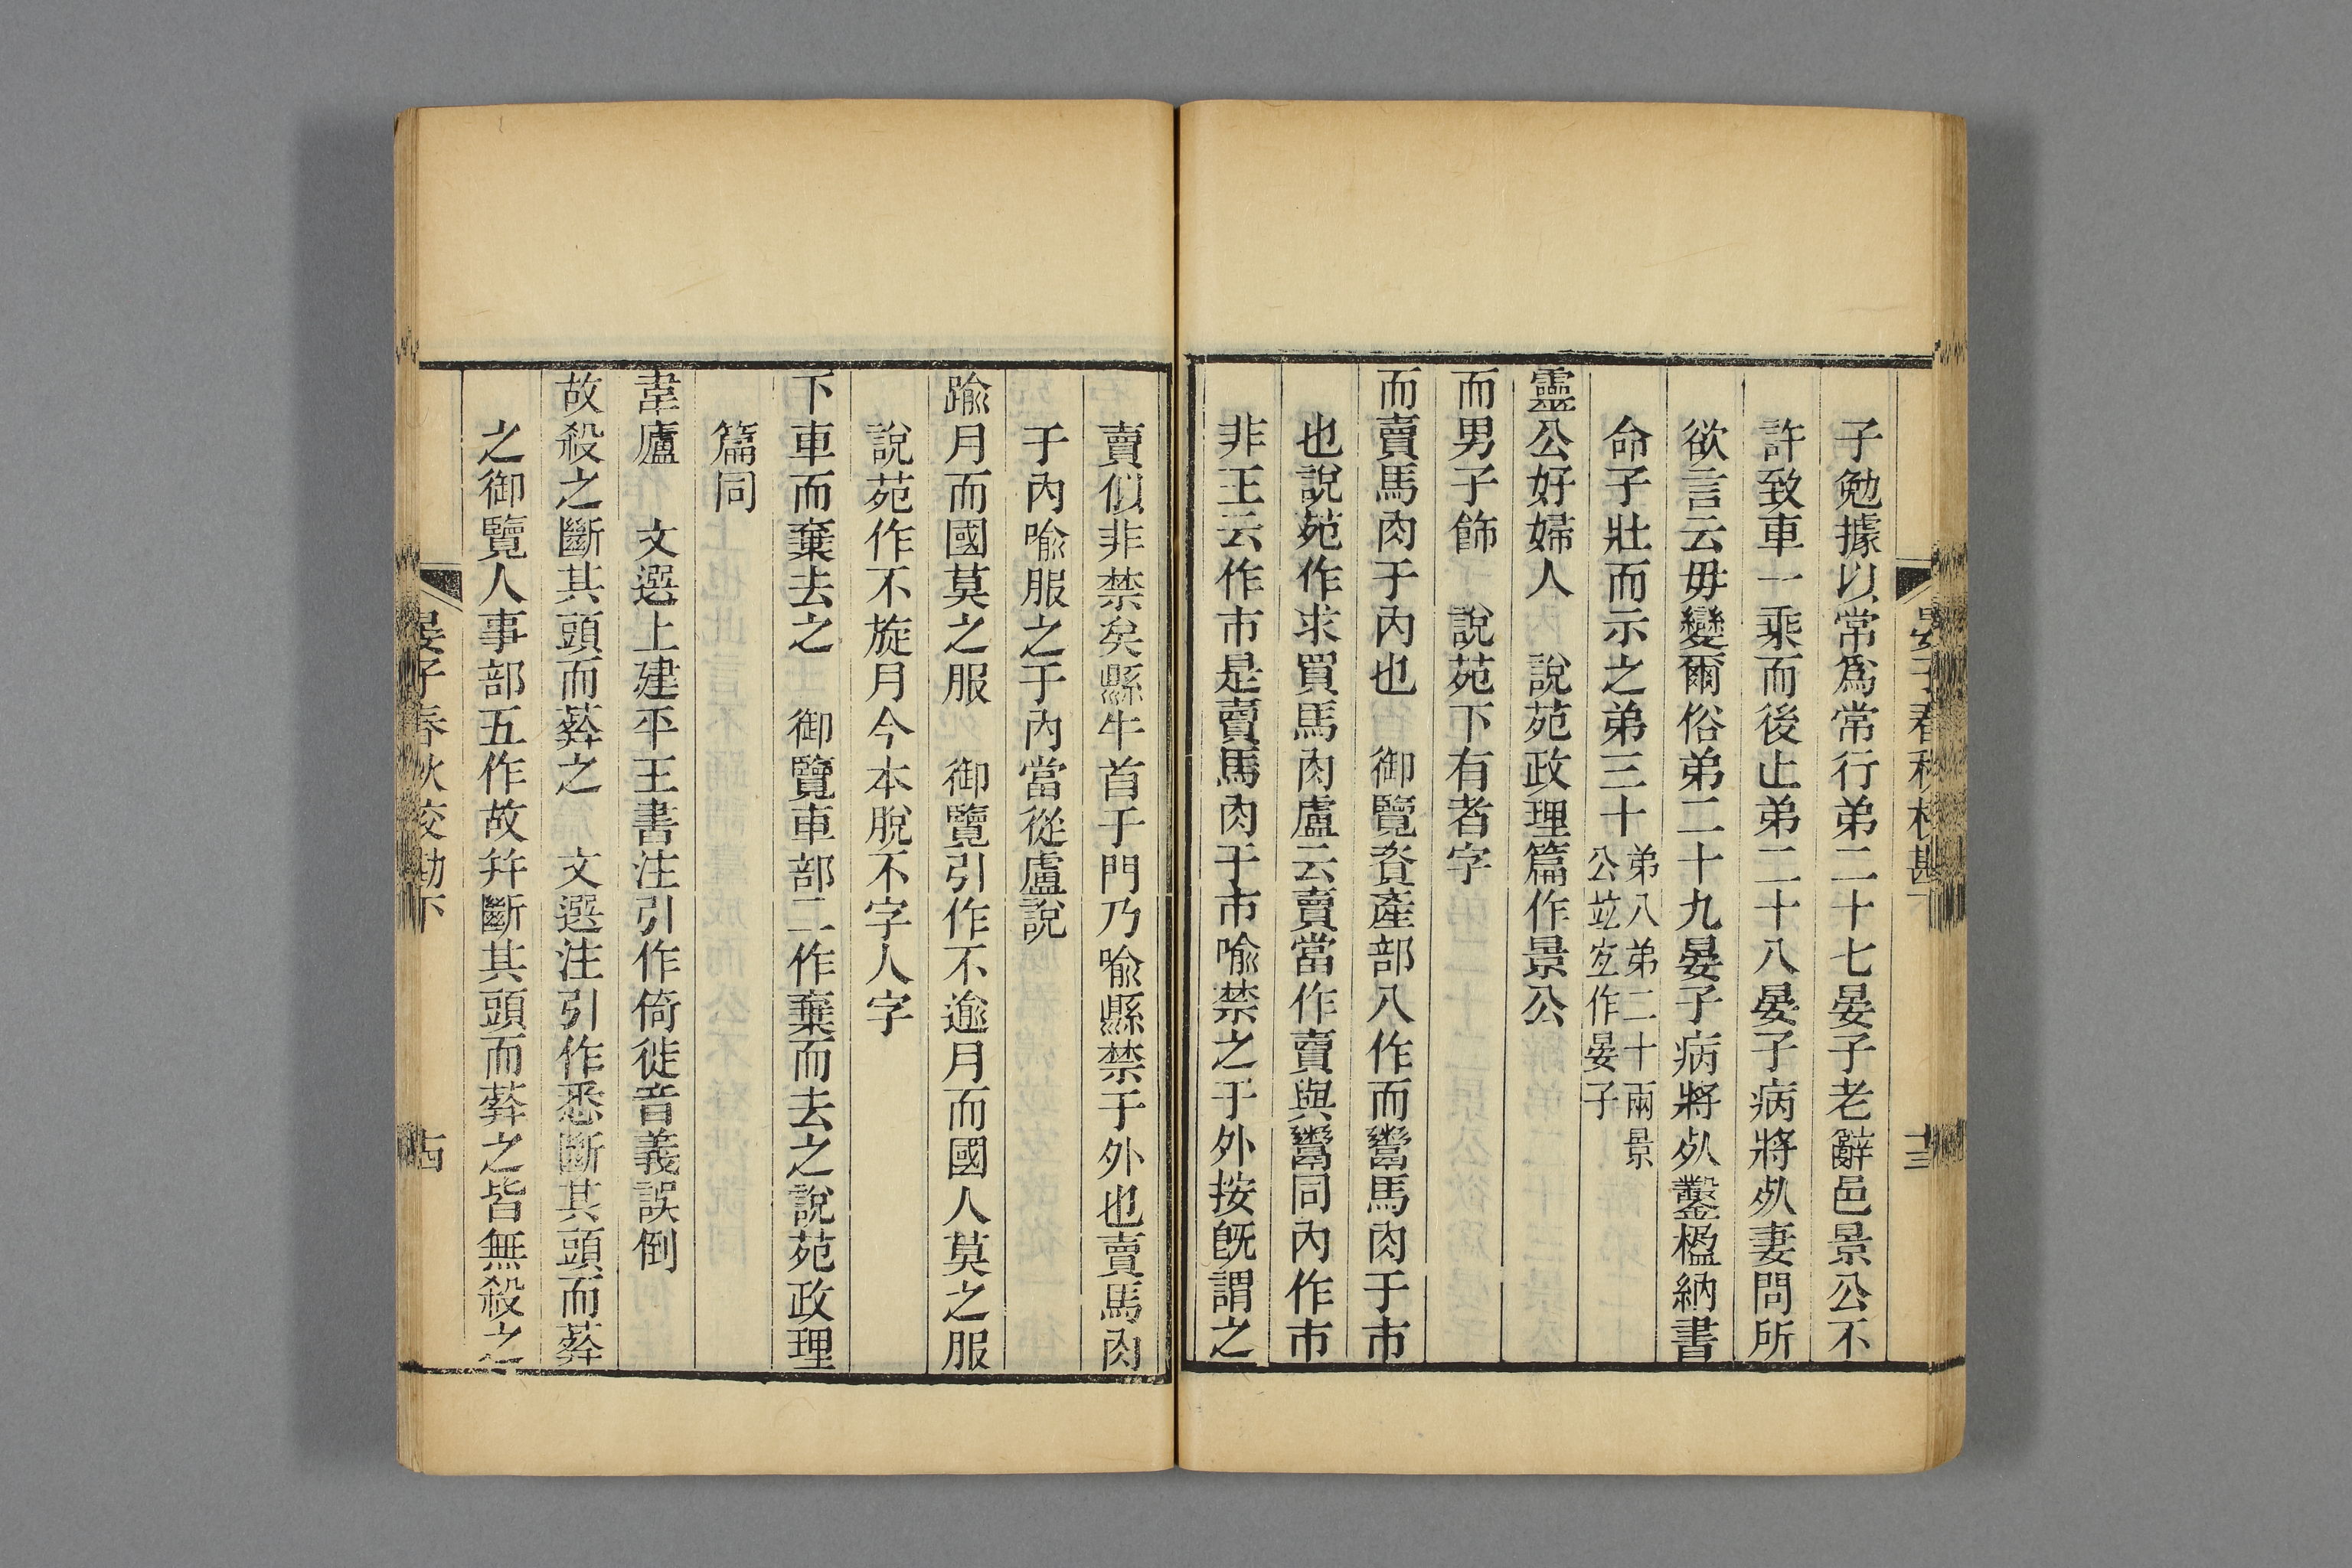 晏子春秋校勘下
十三
子勉據以常爲常行弟二十七晏子老辭邑景公不
許致車一乘而後止弟二十八晏子病將歾妻問所
欲言云毋變爾俗弟二十九晏子病將歾鑿楹納書
命子壯而示之弟三十
弟八弟二十兩景
公竝宜作晏子
靈公好婦人　說苑政理篇作景公
而男子飾　說苑下有者字
而賣馬肉于內也　御覽資產部八作而鬻馬肉于市
也說苑作求買馬肉盧云賣當作賣與鬻同內作市
非王云作市是賣馬肉于市喻禁之于外按旣謂之
賣似非禁矣縣牛首于門乃喻縣禁于外也賣馬肉
于內喻服之于內當從盧說
踰月而國莫之服　御覽引作不逾月而國人莫之服
說苑作不旋月今本脫不字人字
下車而棄去之　御覽車部二作棄而去之說苑政理
篇同
韋廬　文選上建平王書注引作倚徙音義誤倒
故殺之斷其頭而葬之　文選注引作悉斷其頭而葬
之御覽人事部五作故幷斷其頭而葬之皆無殺之
晏子春秋校勘下
十四